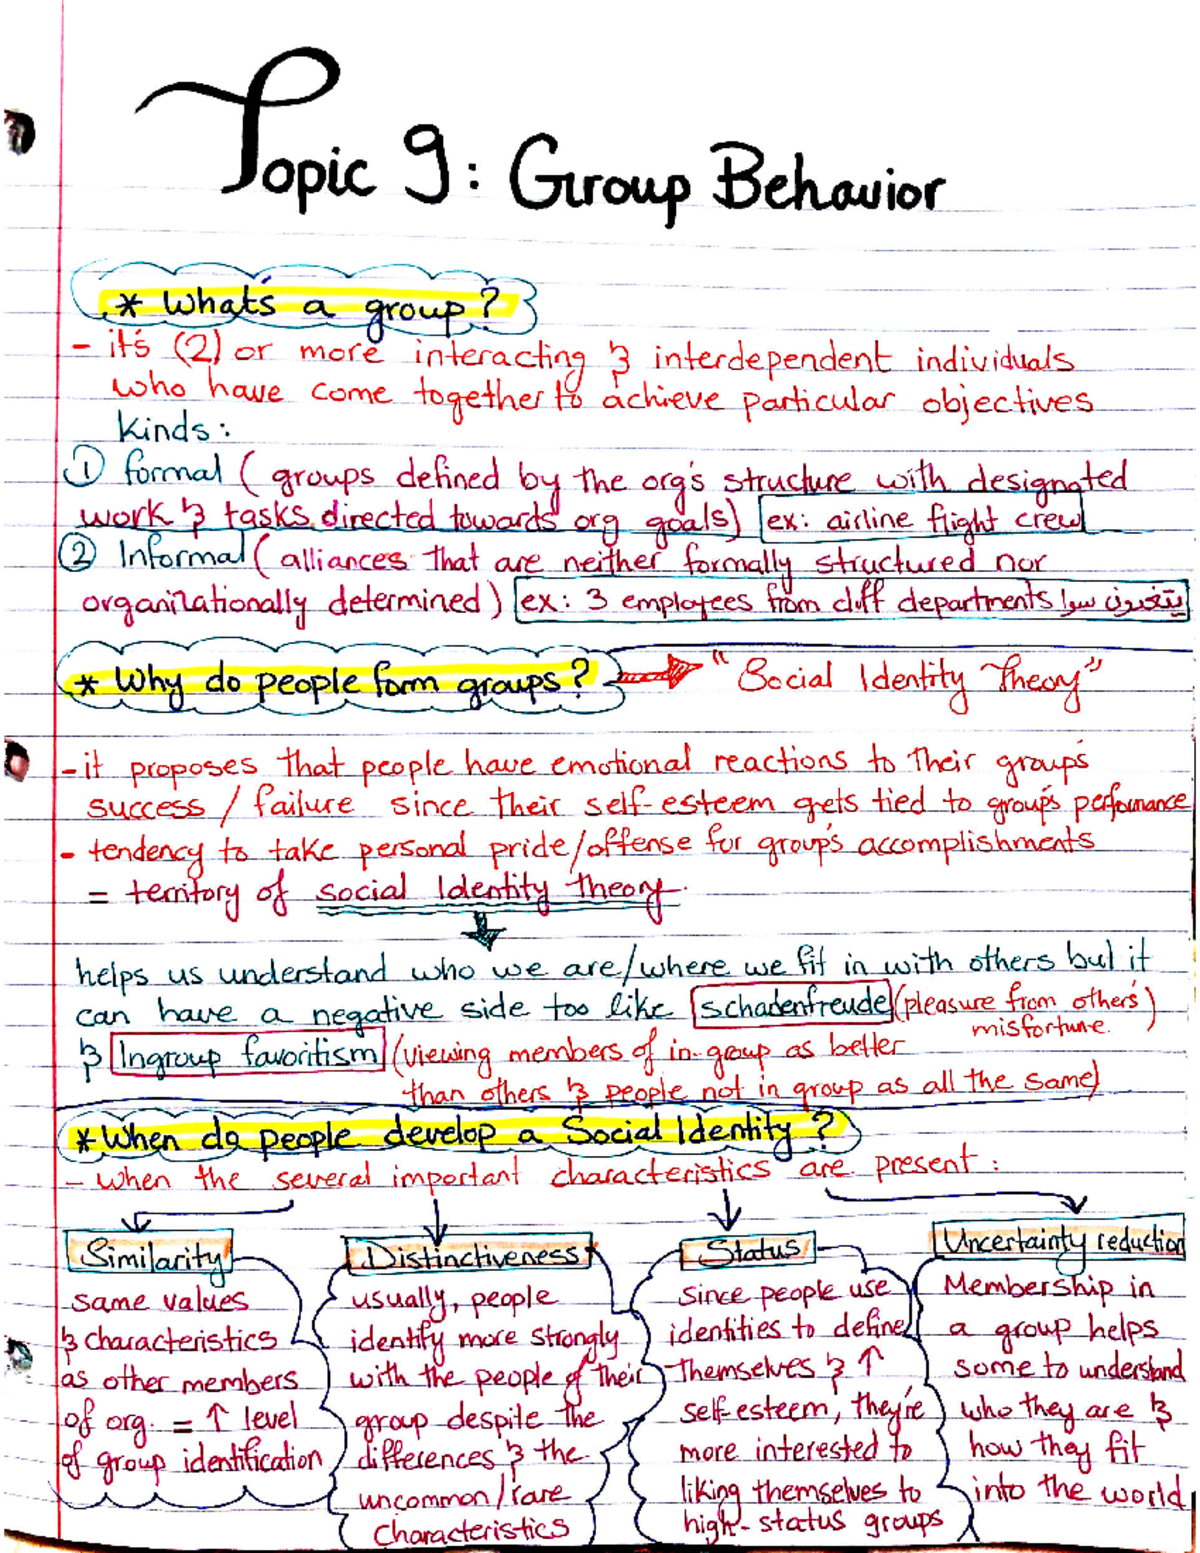 Topic 9: Group Behavior
* What's a group?
- it's (2) or more interacting & interdependent individuals
who have come together to achieve particular objectives
Kinds:
① formal (groups defined by the org's structure with designated
work & tasks directed towards org goals) ex: airline flight crew
② Informal (alliances that are neither formally structured nor
organizationally determined) ex: 3 employees from diff departments يتغدون سوا
* Why do people form groups? "Social Identity Theory"
- it proposes that people have emotional reactions to their group's
success / failure since their self-esteem gets tied to group's performance
- tendency to take personal pride/offense for group's accomplishments
= territory of social Identity theory.
helps us understand who we are/where we fit in with others but it
can have a negative side too like schadenfreude (pleasure from others'
misfortune.)
& Ingroup favoritism (viewing members of in-group as better
than others & people not in group as all the same)
* When do people develop a Social Identity?
- when the several important characteristics are present:
Similarity
same values
& characteristics
as other members
of org. = ↑ level
of group identification
Distinctiveness
usually, people
identify more strongly
with the people of their
group despite the
differences & the
uncommon/rare
characteristics
Status
since people use
identities to define
themselves & ↑
self-esteem, they're
more interested to
liking themselves to
high-status groups
Uncertainty reduction
Membership in
a group helps
some to understand
who they are &
how they fit
into the world